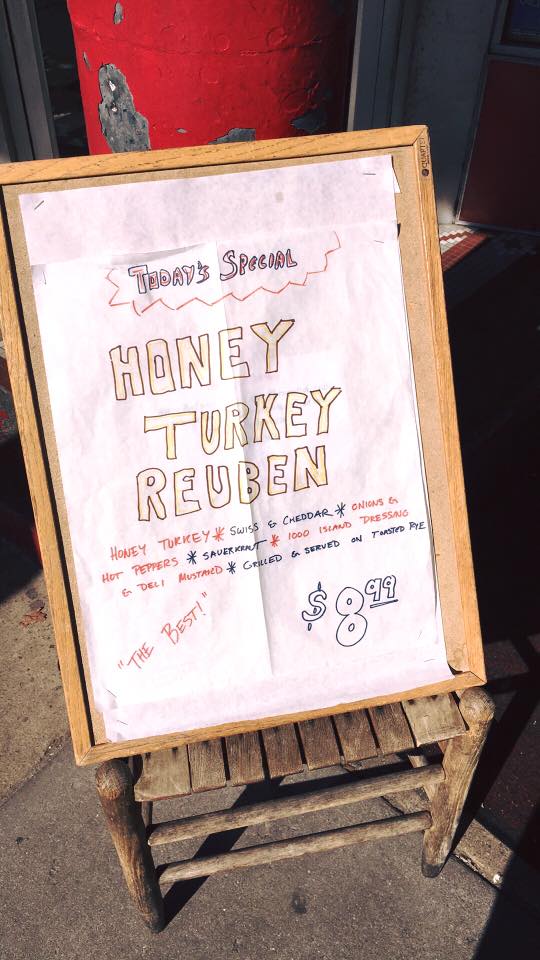 TODAY'S SPECIAL
HONEY
TURKEY
REUBEN
HONEY TURKEY * SWISS & CHEDDAR * ONIONS &
HOT PEPPERS * SAUERKRAUT * 1000 ISLAND DRESSING
& DELI MUSTARD * GRILLED & SERVED ON TOASTED RYE
"THE BEST!"
$8.99